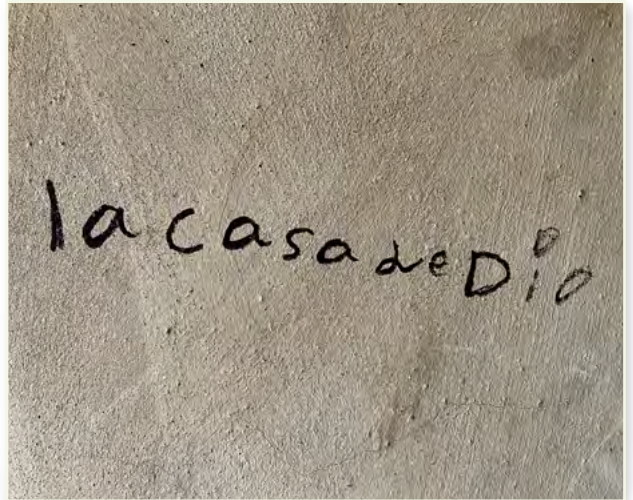 la casa de Dio